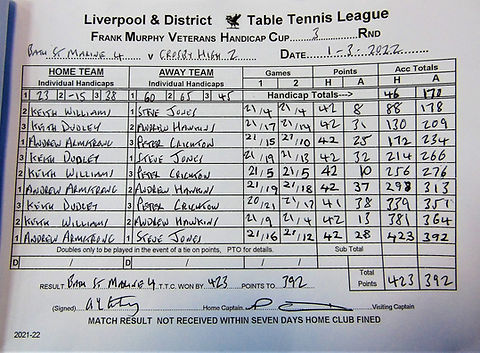 Liverpool & District Table Tennis League
FRANK MURPHY VETERANS HANDICAP CUP 3 RND
BATH ST MARINE 4 v CROSBY HIGH 2 DATE 1-3-2022
HOME TEAM AWAY TEAM Games Points Acc Totals
Individual Handicaps Individual Handicaps 1 2 H A H A
1 23 2 -15 3 38 1 60 2 65 3 45 Handicap Totals---> 46 170
2 KEITH WILLIAMS 1 STEVE JONES 21/4 21/4 42 8 88 178
3 KEITH DUDLEY 2 ANDREW HAWKINS 21/17 21/14 42 31 130 209
1 ANDREW ARMSTRONG 3 PETER CRICHTON 21/15 21/10 42 25 172 234
3 KEITH DUDLEY 1 STEVE JONES 21/19 21/13 42 32 214 266
2 KEITH WILLIAMS 3 PETER CRICHTON 21/5 21/5 42 10 256 276
1 ANDREW ARMSTRONG 2 ANDREW HAWKINS 21/19 21/18 42 37 298 313
3 KEITH DUDLEY 3 PETER CRICHTON 20/21 21/17 41 38 339 351
2 KEITH WILLIAMS 2 ANDREW HAWKINS 21/9 21/4 42 13 381 364
1 ANDREW ARMSTRONG 1 STEVE JONES 21/16 21/12 42 28 423 392
Doubles only to be played in the event of a tie on points, PTO for details. Sub Total
D D / /
RESULT BATH ST MARINE 4 T.T.C. WON BY 423 POINTS TO 392 Total Points 423 392
(Signed) Home Captain Visiting Captain
MATCH RESULT NOT RECEIVED WITHIN SEVEN DAYS HOME CLUB FINED
2021-22